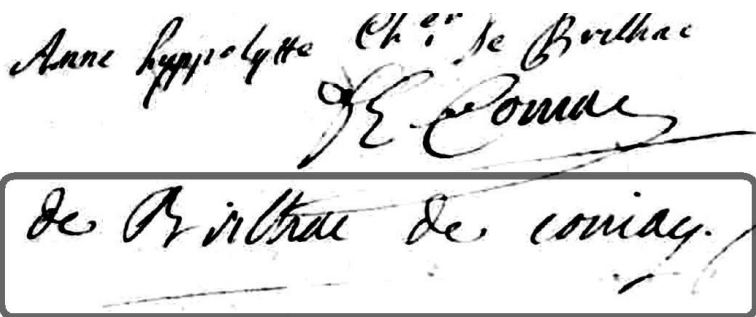 Anne hyppolytte Ch.er de Brilhac
De Comae
de Brilhac de comay.